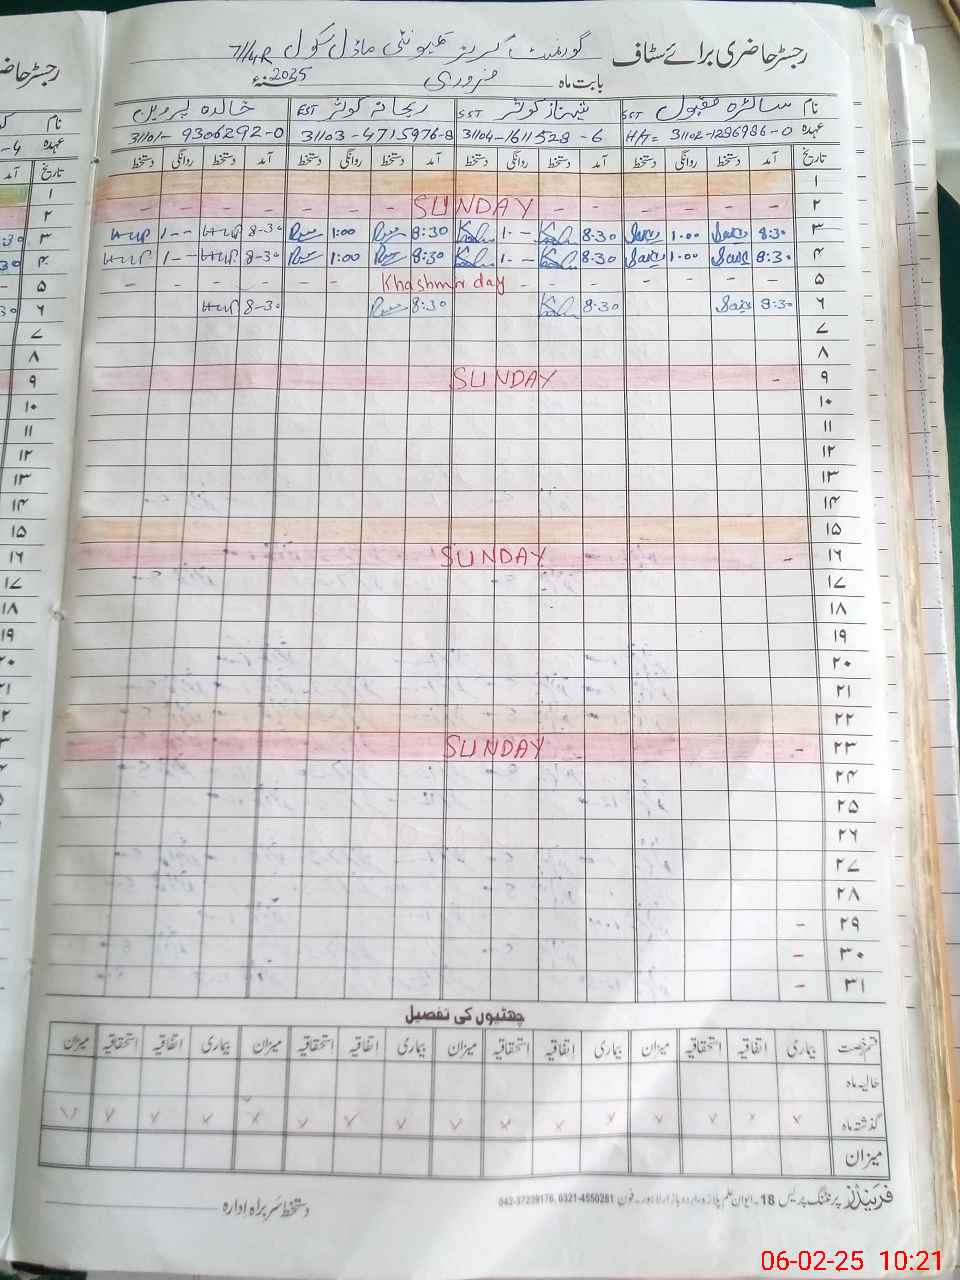 رجسٹر حاضری برائے سٹاف گورنمنٹ گرلز کمیونٹی ماڈل سکول 7/4R
بابت ماہ فروری سنہء 2025
نام سائرہ مقبول SST شہناز کوثر SST ریحانہ کوثر EST خالدہ پروین
عہدہ H/T= 31102-1286986-0 31104-1611528-6 31103-4715976-8 31101-9306292-0
تاریخ آمد دستخط روانگی دستخط آمد دستخط روانگی دستخط آمد دستخط روانگی دستخط آمد دستخط روانگی دستخط
۱
۲ SUNDAY
۳ 8:30 1.00 8.30 1.- 8:30 1:00 8-30 1--
۴ 8:30 1.00 8.30 1.- 8:30 1:00 8-30 1--
۵ Khashmir day
۶ 8:30 8.30 8:30 8-30
۷
۸
۹ SUNDAY
۱۰
۱۱
۱۲
۱۳
۱۴
۱۵
۱۶ SUNDAY
۱۷
۱۸
۱۹
۲۰
۲۱
۲۲
۲۳ SUNDAY
۲۴
۲۵
۲۶
۲۷
۲۸
۲۹ -
۳۰ -
۳۱ -
چھٹیوں کی تفصیل
قسم رخصت بیماری اتفاقیہ استحقاقیہ میزان بیماری اتفاقیہ استحقاقیہ میزان بیماری اتفاقیہ استحقاقیہ میزان بیماری اتفاقیہ استحقاقیہ میزان
حالیہ ماہ
گذشتہ ماہ
میزان
فرینڈز پرنٹنگ پریس 18۔ ایوان علم پلازہ، اردو بازار لاہور۔ فون 0321-4550261 ,042-37239176
دستخط سربراہ ادارہ
06-02-25 10:21